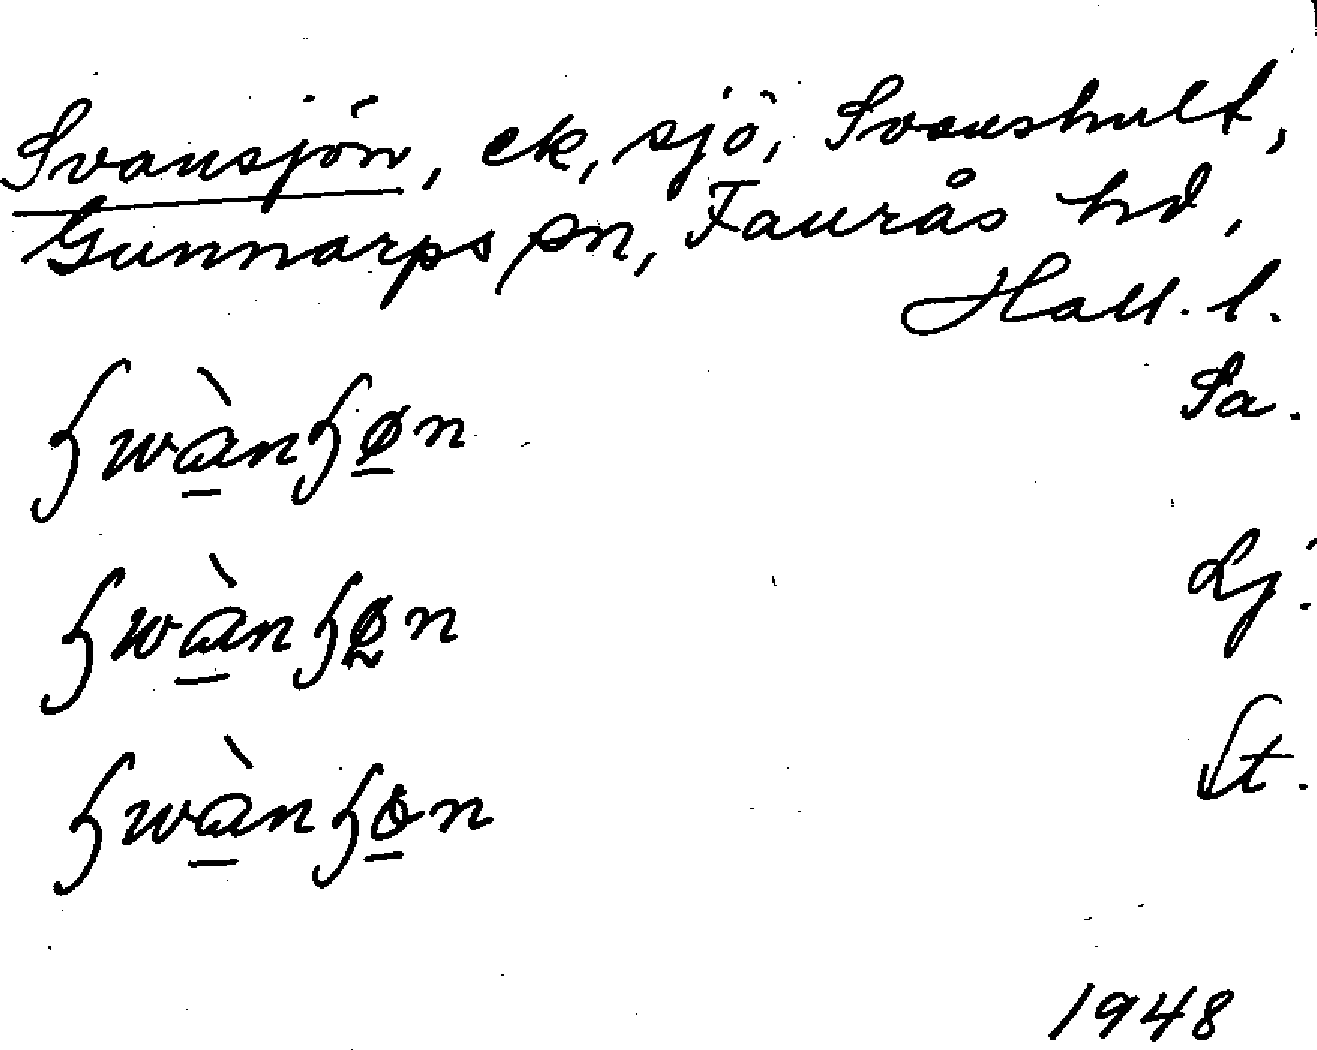 Svansjön, ek, sjö, Svanshult,
Gunnarps sn, Faurås hd,
Hall. l.
Sa.
Lj.
St.
1948